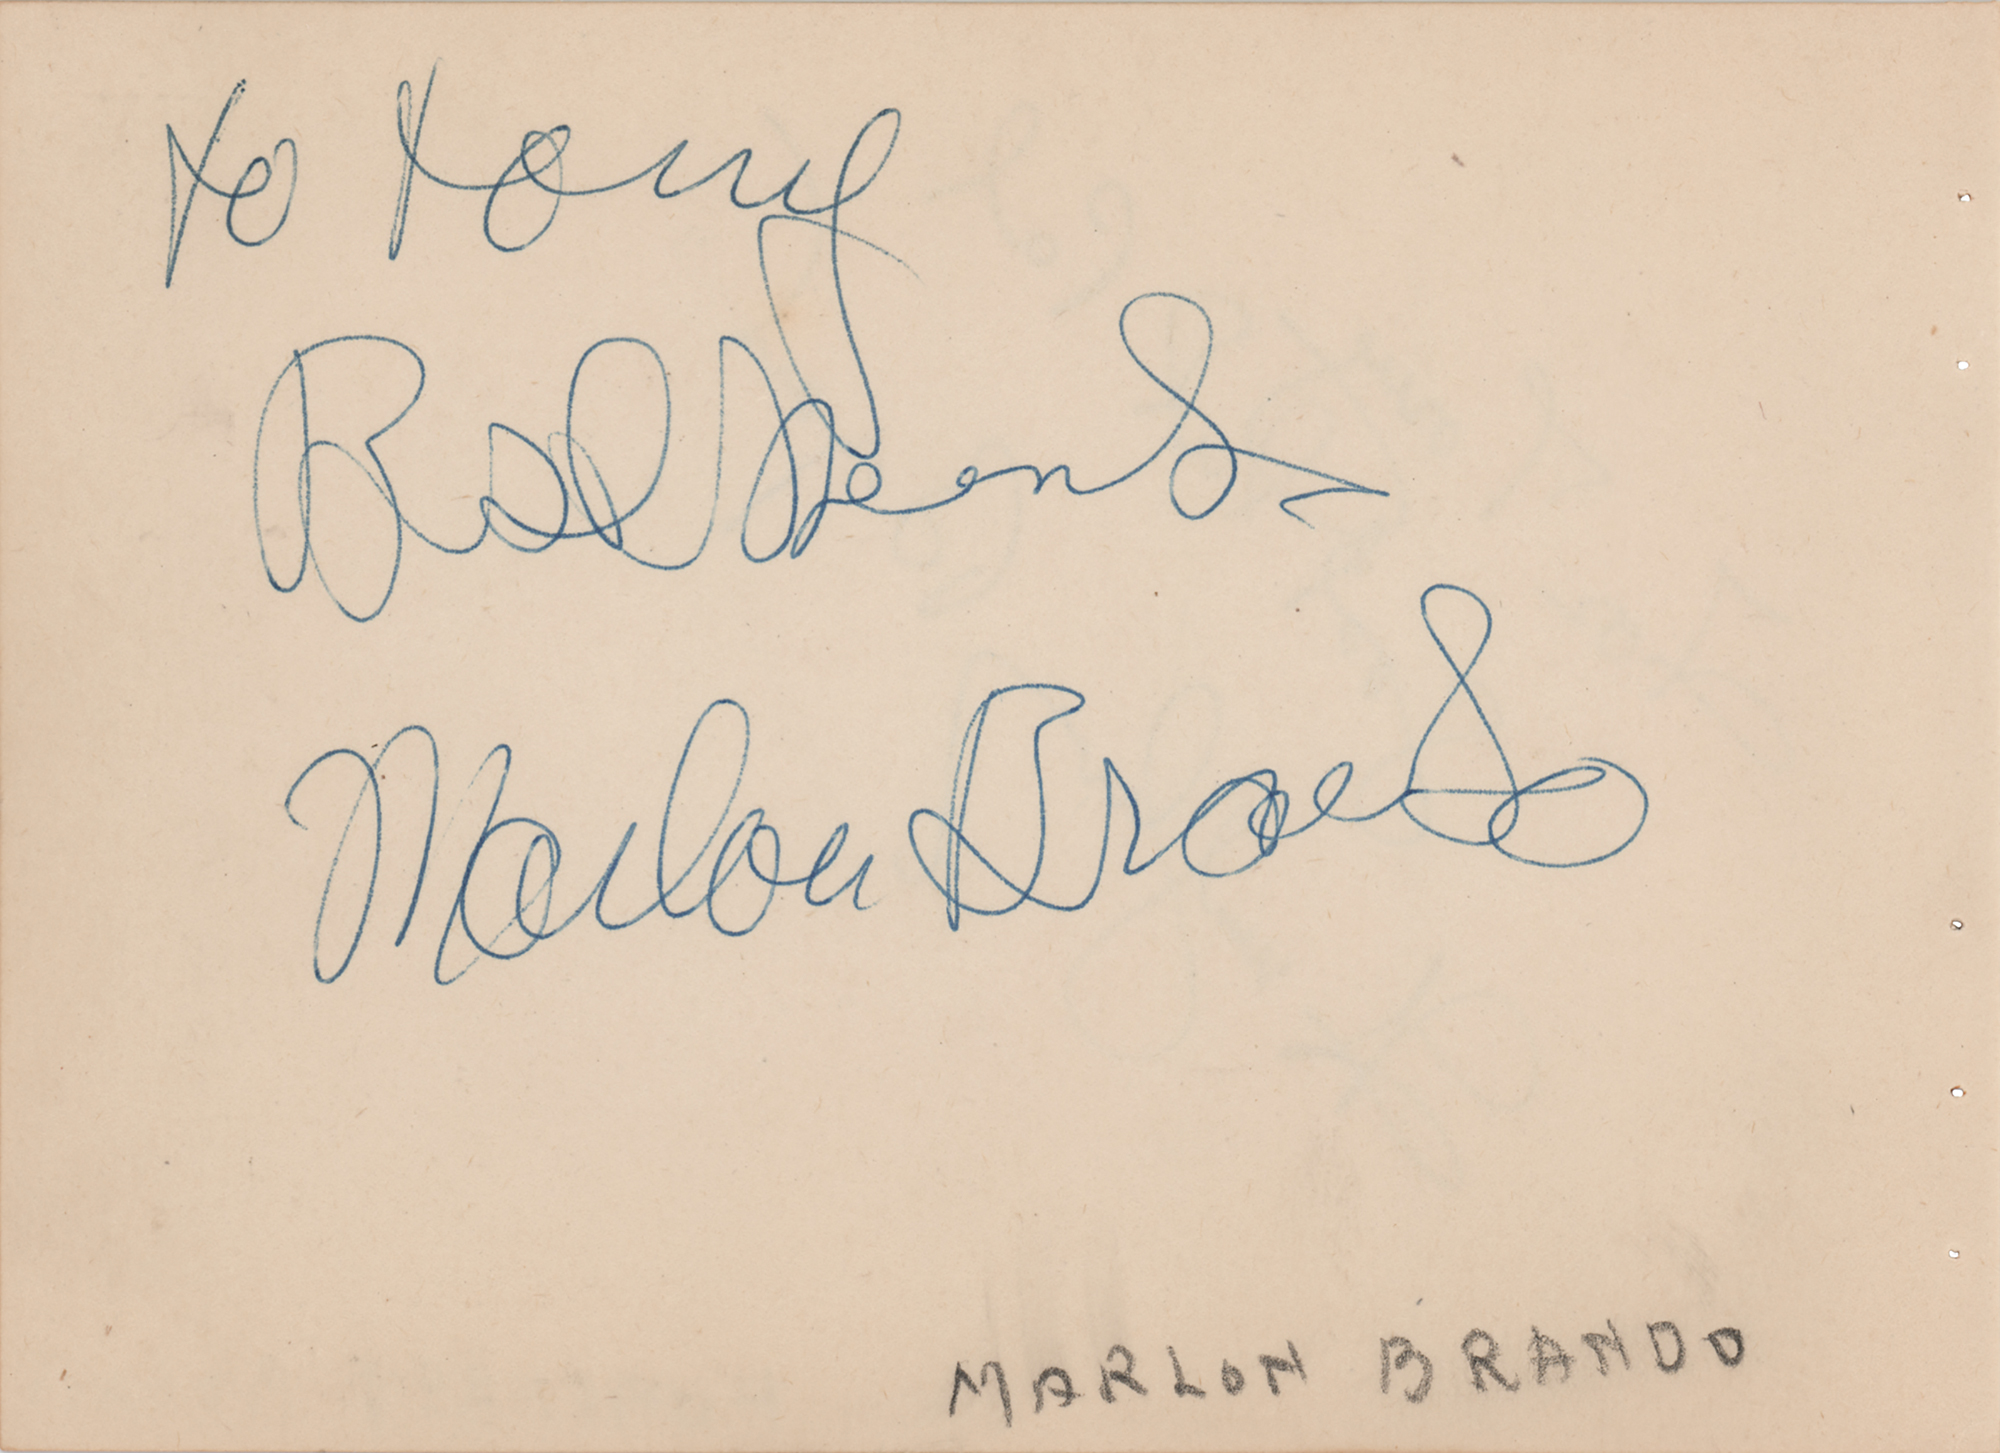 to Tony
Best
Marlon Brando
MARLON BRANDO